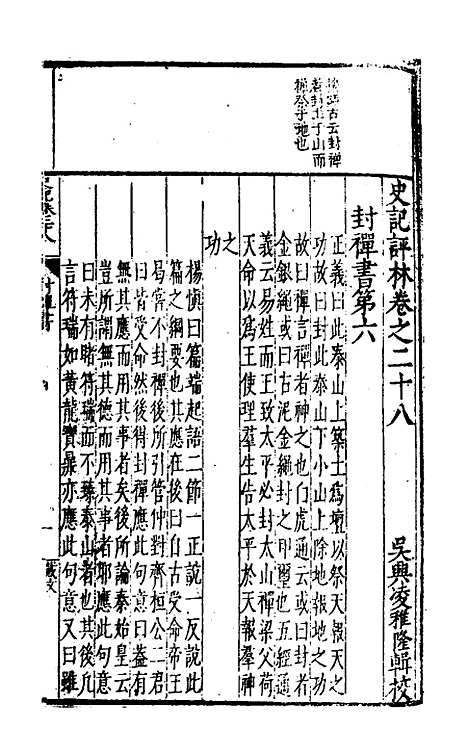 史記評林卷之二十八
吳興凌稚隆輯校
封禪書第六
正義曰此泰山上築土為壇以祭天報天之
功故曰封此泰山下小山上除地報地之功
故曰禪言禪者神之也白虎通云或曰封者
金銀繩或曰石泥金繩封之印璽也五經通
義云易姓而王致太平必封太山禪梁父荷
天命以為王使理羣生告太平於天報羣神
之功
楊慎曰篇端起語二節一正說一反說此
篇之綱要也其應在後曰自古受命帝王
曷嘗不封禪後所引管仲對齊桓公二君
曰皆受命然後得封禪應此句意曰葢有
無其應而用其事者矣後所論秦始皇云
豈所謂無其德而用其事者耶應此句意
曰未有睹符瑞而不臻泰山者也其後凡
言符瑞如黃龍寶鼎亦應此句意又曰雖
古云封禪
者封土于山而
禪祭于地也